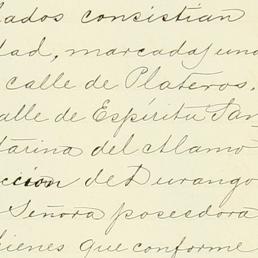 lados consistian
dad, marcadas una
calle de Plateros.
alle de Espíritu San
tarina del Alamo
ccion de Durango
Señora poseedora
bienes que conforme